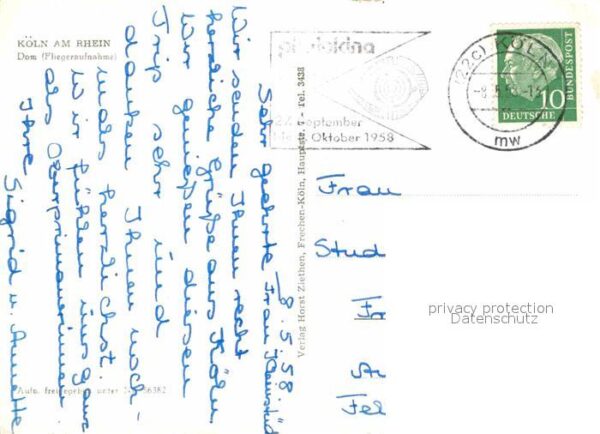 KÖLN AM RHEIN
Dom (Fliegeraufnahme)
8.5.58.
Sehr geehrte Frau
Wir senden Ihnen recht
herzliche Grüße aus Köln
Wir genießen diesen
Trip sehr und
danken Ihnen noch-
mals herzlichst.
Wir fühlen uns ganz
als Oberprimanerinnen
Ihre
Sigrid u. Annette
Aufn. freigegeben unter
Verlag Horst Ziethen, Frechen-Köln, Hauptstr. - Tel. 3438
photokina
27. September
Oktober 1958
(22c) KÖLN
mw
10
DEUTSCHE
BUNDESPOST
Frau
Stud
Fr
St
Fel
privacy protection
Datenschutz